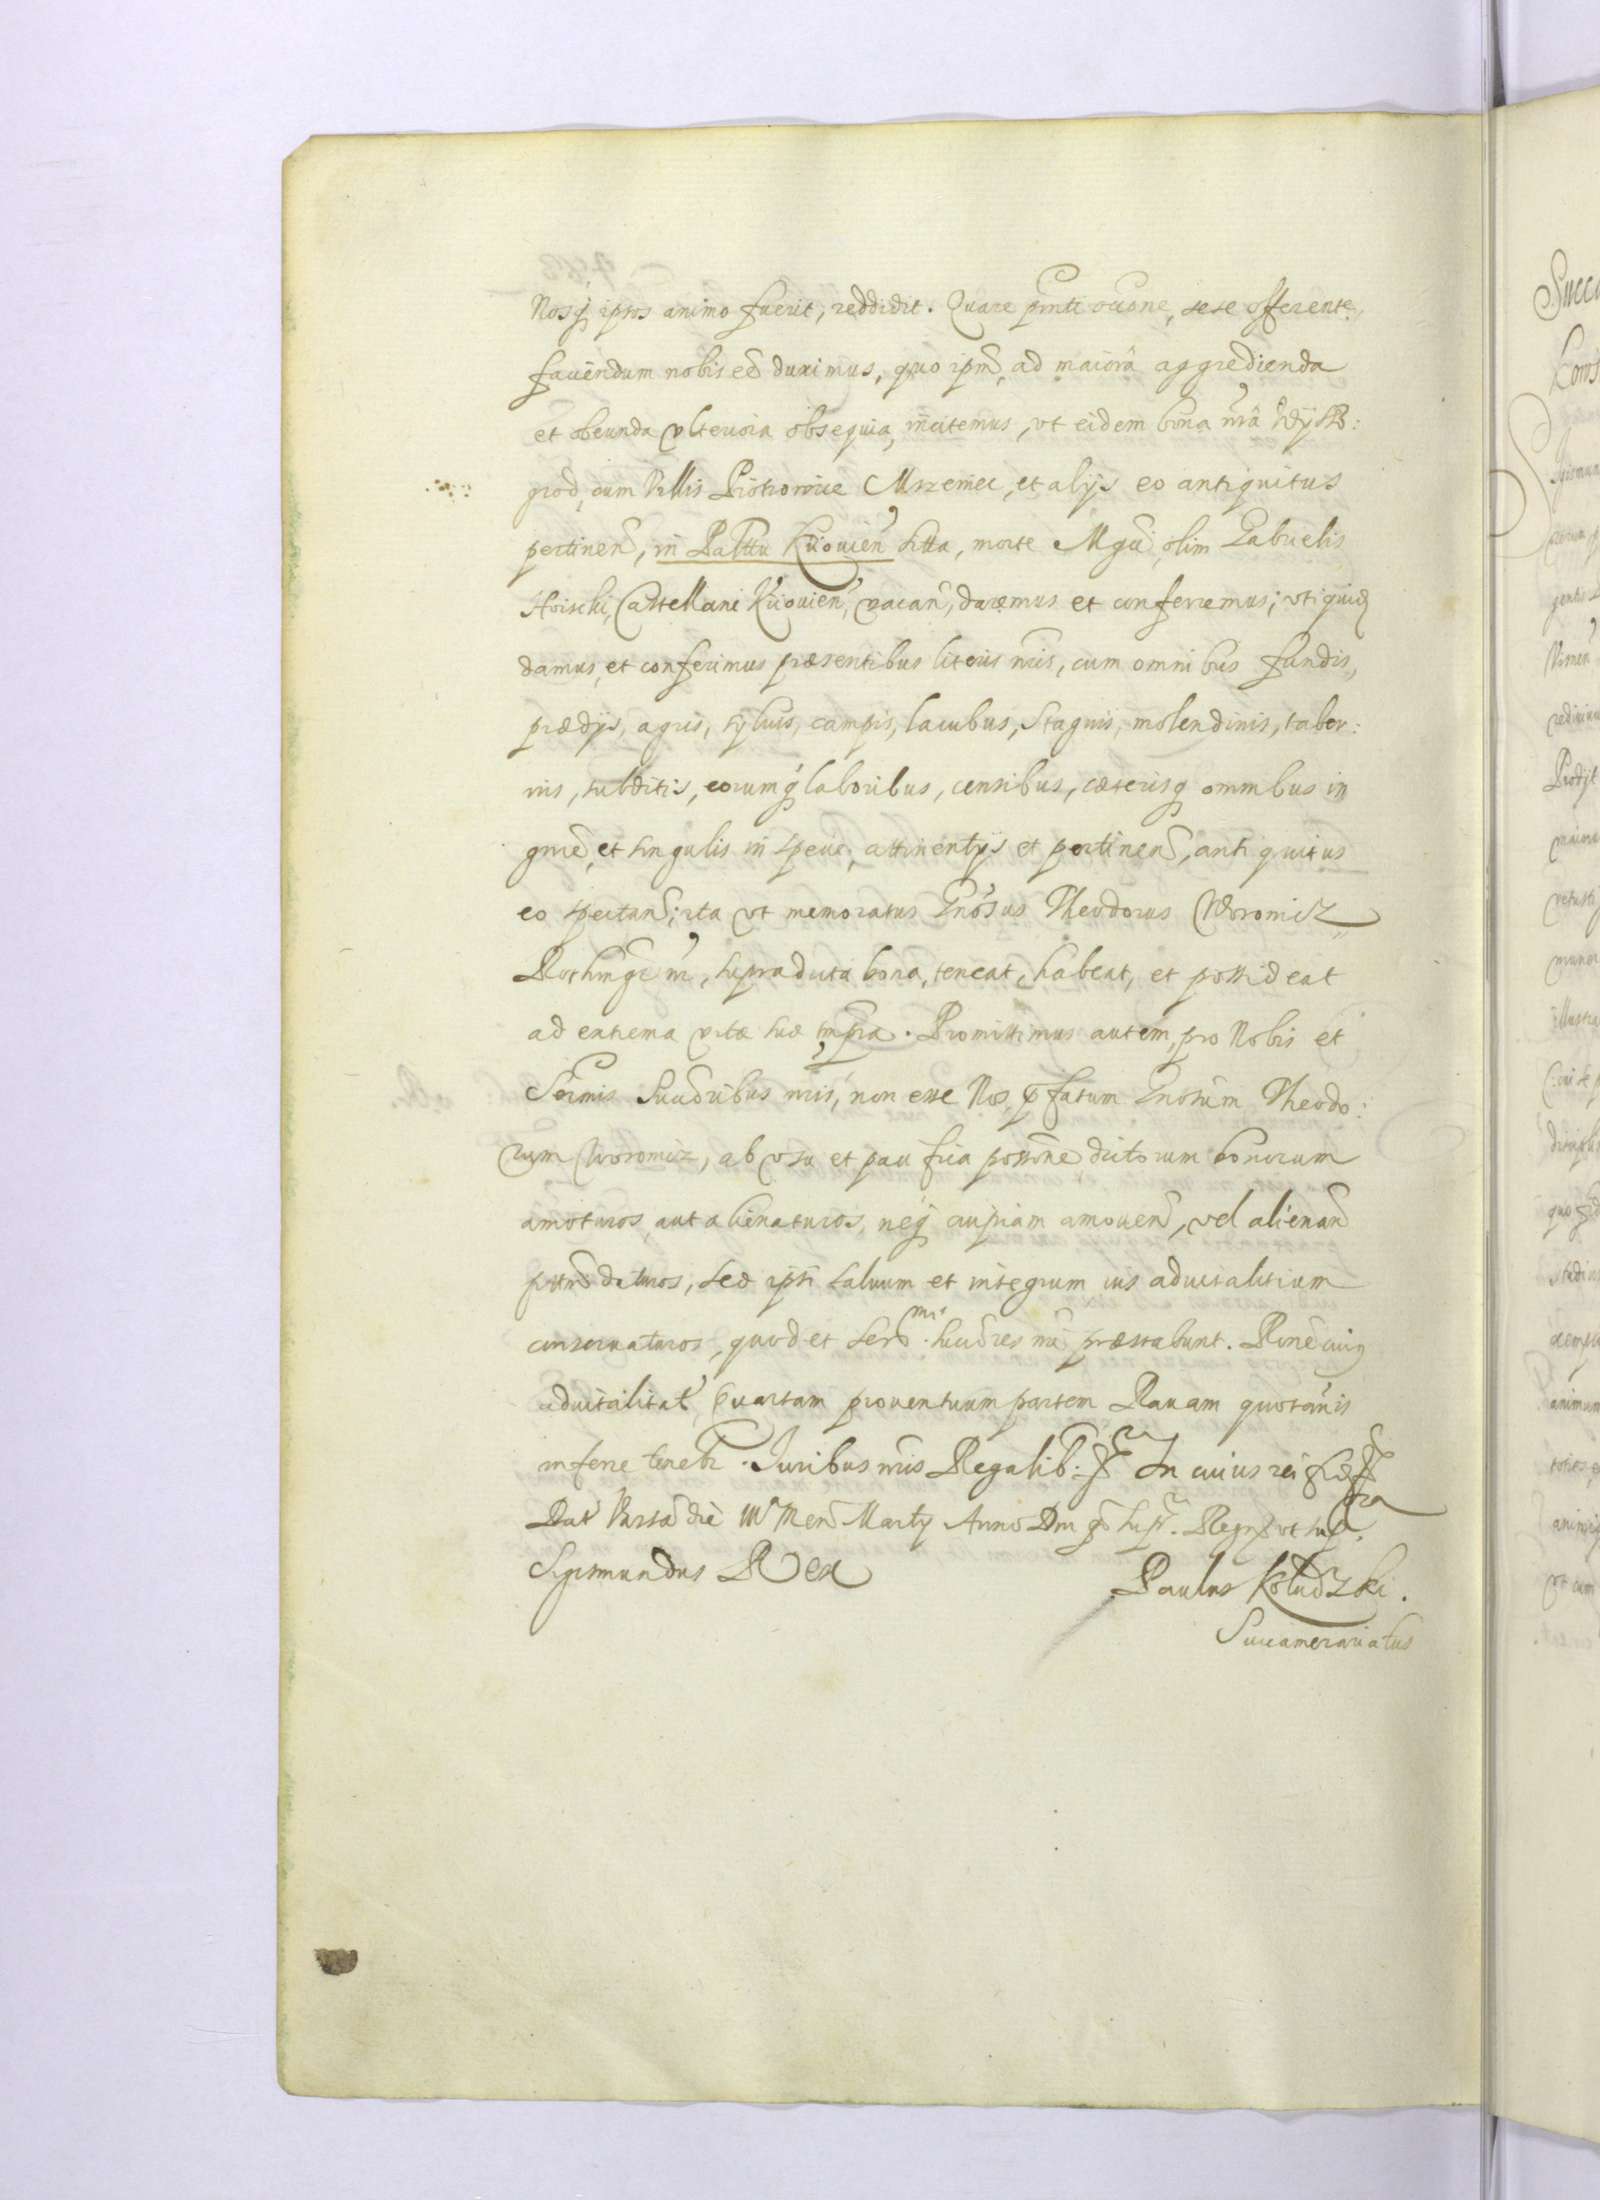 Nosq ipsos animo fuerit, reddidit. Quare pnti occone, sese offerente,
fauendum nobis eẽ duximus, quo ipm̃, ad maiora aggredienda
et obeunda vlteriora obsequia, incitemus, vt eidem bona nr̃a Wysz:
grod, cum Villis Piotrowice Mrzemiec, et alys eo antiquitus
pertineñ, in Palttu Kiiouieñ sitta, morte Mgci olim Gabrielis
Hoischi, Castellani Kiiouieñ, vacañ, daremus et conferremus; vti quidẽ
damus, et conferimus præsentibus literis nris, cum omnibus fundis,
prædys, agris, syluis, campis, lacubus, stagnis, molendinis, taber:
nis, subditis, eorumq laboribus, censibus, cæterisq omnibus in
gnre, et singulis in specie, attinentys et pertineñ, antiquitus
eo spectañ; ita vt memoratus Gnosus Theodorus Woronicz
supradicta bona, teneat, habeat, et possideat
ad extrema vitæ suæ tmpra. Promittimus autem, pro Nobis et
Sermis Succribus nris, non esse Nos, pfatum Gnosum Theodo:
rum Woronicz, ab vsu et pacifica possone dictorum bonorum
amoturos, aut alienaturos, neq cuipiam amoueñ, vel alienañ
ptm daturos, sed ipsi saluum et integrum ius aduitalitium
conseruaturos, quod et Sermi. succres nri præstabunt. Rone cuiq
aduitalitat, Quartam prouentuum partem Rauam quotannis
inferre tenebr. Juribus nris Regalib: In cuius rei fidẽ
Dat Varsa die Meñ Marty Anno Dni Regn vt supra.
Sigismundus Rex
Paulus Koludzki.
Succamerariatus